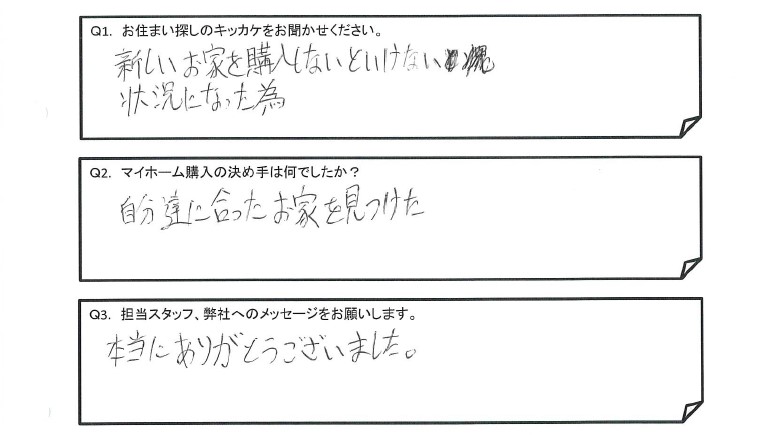 Q1. お住まい探しのキッカケをお聞かせください。
新しいお家を購入しないといけない
状況になった為
Q2. マイホーム購入の決め手は何でしたか？
自分達に合ったお家を見つけた
Q3. 担当スタッフ、弊社へのメッセージをお願いします。
本当にありがとうございました。